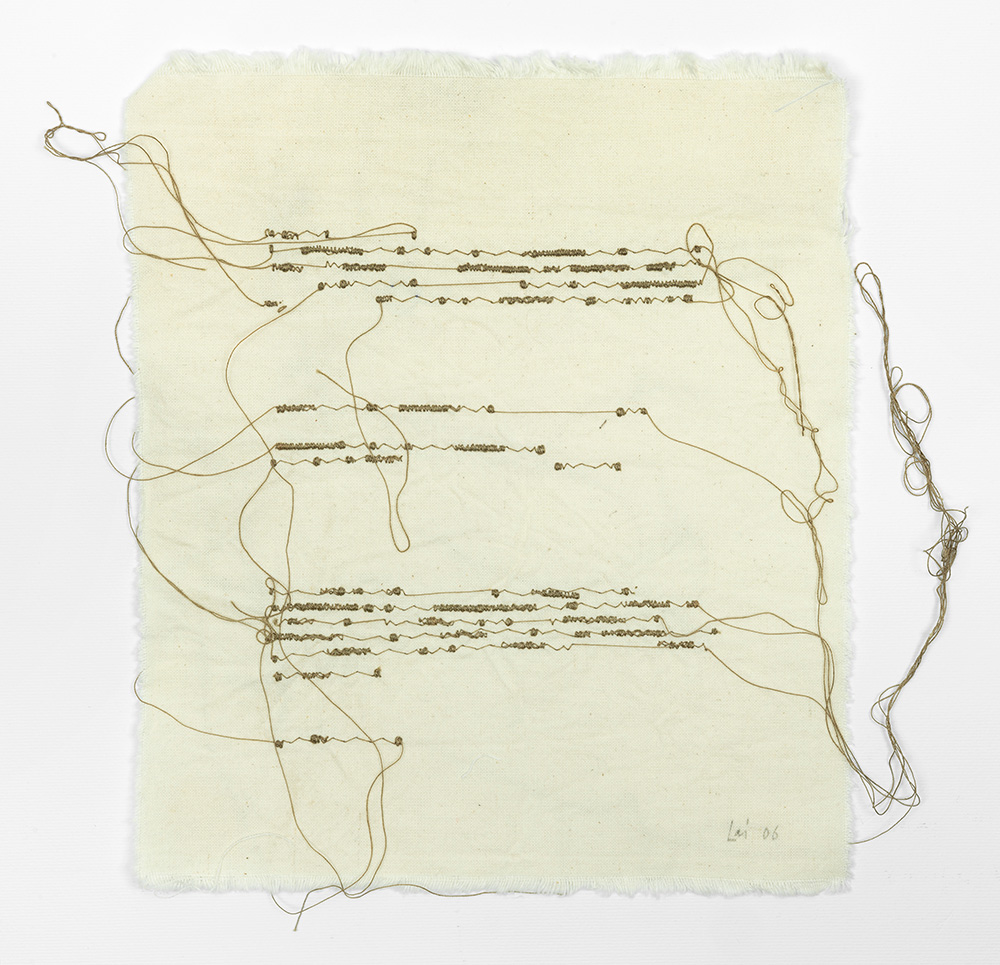 Lai 06